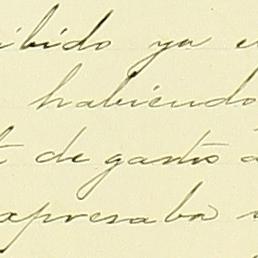 ibido ya e
habiendo
t de gastos a
apresaba